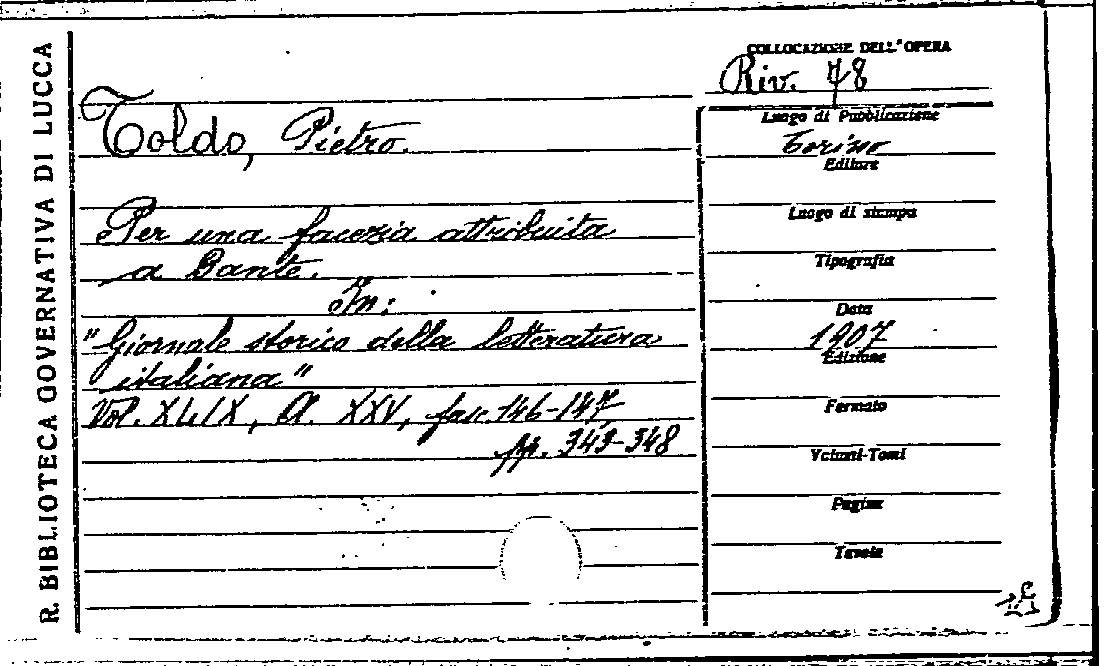 R. BIBLIOTECA GOVERNATIVA DI LUCCA
Toldo, Pietro.
Per una facezia attribuita
a Dante.
In:
"Giornale storico della letteratura
italiana"
Vol. XLIX, A. XXV, fasc. 146-147
pp. 343-348
COLLOCAZIONE DELL'OPERA
Riv. 78
Luogo di Pubblicazione
Torino
Editore
Luogo di stampa
Tipografia
Data
1907
Edizione
Formato
Volumi-Tomi
Pagine
Tavole